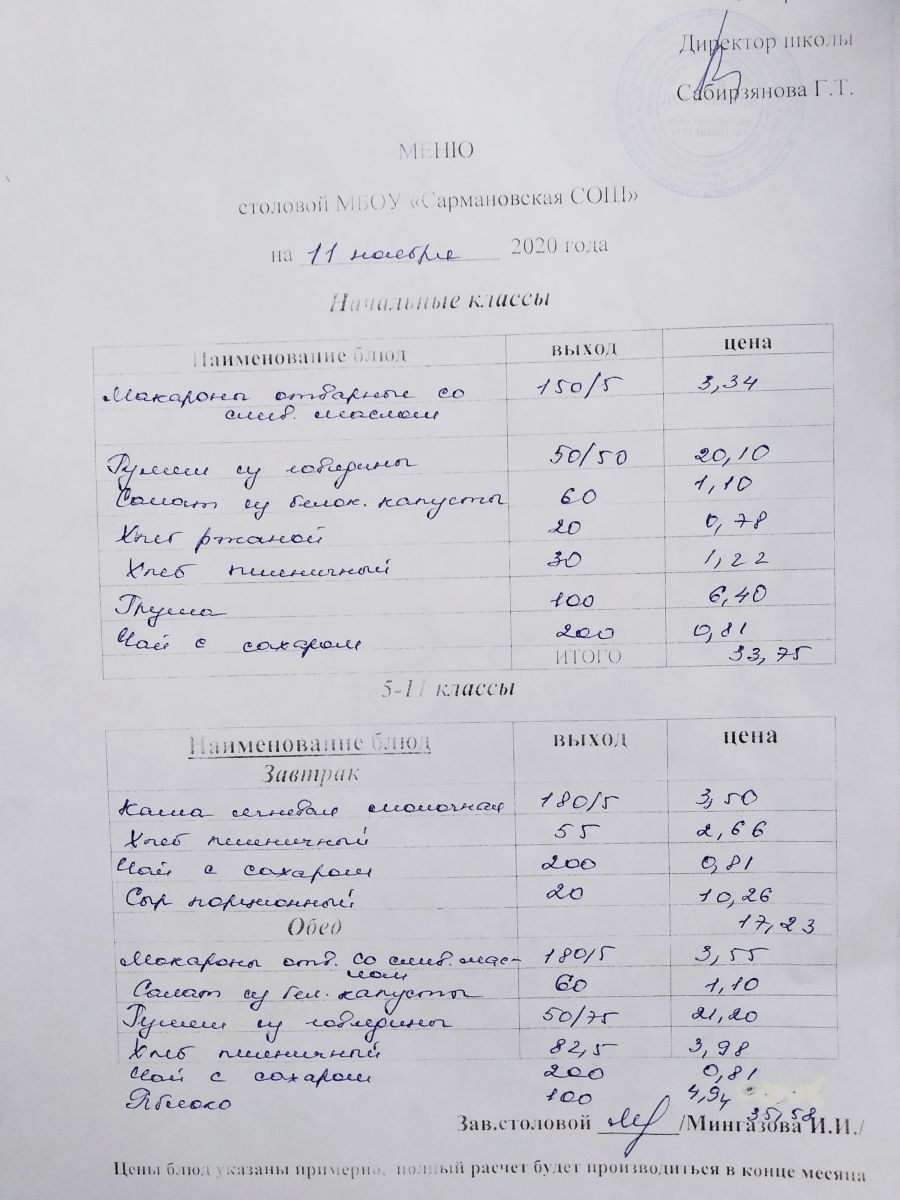 Директор школы
Сабирзянова Г.Т.
МЕНЮ
столовой МБОУ «Сармановская СОШ»
на 11 ноября 2020 года
Начальные классы
Наименование блюд выход цена
Макароны отварные со 150/5 3,34
слив. маслом
Гуляш из говядины 50/50 20,10
Салат из белок. капусты 60 1,10
Хлеб ржаной 20 0,78
Хлеб пшеничный 30 1,22
Груша 100 6,40
Чай с сахаром 200 0,81
ИТОГО 33,75
5-11 классы
Наименование блюд выход цена
Завтрак
Каша ячневая молочная 180/5 3,50
Хлеб пшеничный 55 2,66
Чай с сахаром 200 0,81
Сыр порционный 20 10,26
Обед 17,23
Макароны отв. со слив. мас- 180/5 3,55
лом
Салат из бел. капусты 60 1,10
Гуляш из говядины 50/75 21,20
Хлеб пшеничный 82,5 3,98
Чай с сахаром 200 0,81
Яблоко 100 4,94
35,58
Зав.столовой /Мингазова И.И./
Цены блюд указаны примерно, полный расчет будет производиться в конце месяца